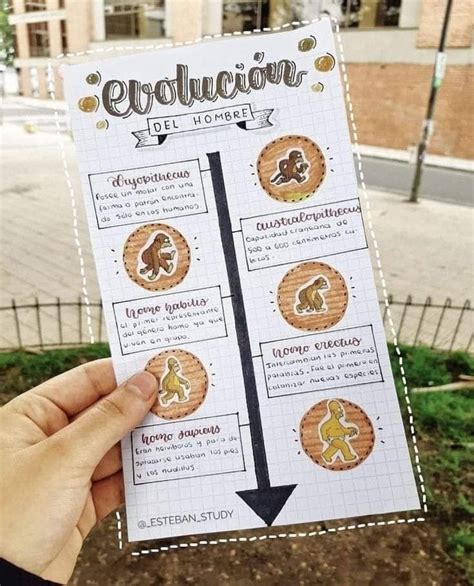 evolución
DEL HOMBRE
dryopithecus
Posee un molar con una
forma o patrón encontra-
do sólo en los humanos.
australopithecus
Capacidad craneana de
500 a 600 centímetros cú-
bicos.
homo habilis
El primer representante
del género homo ya que
viven en grupo.
homo erectus
Intercambian las primeras
palabras. Fue el primero en
colonizar nuevas especies
homo sapiens
Eran herviboros y para de-
splazarse usaban los pies
y los nudillos.
@_ESTEBAN_STUDY